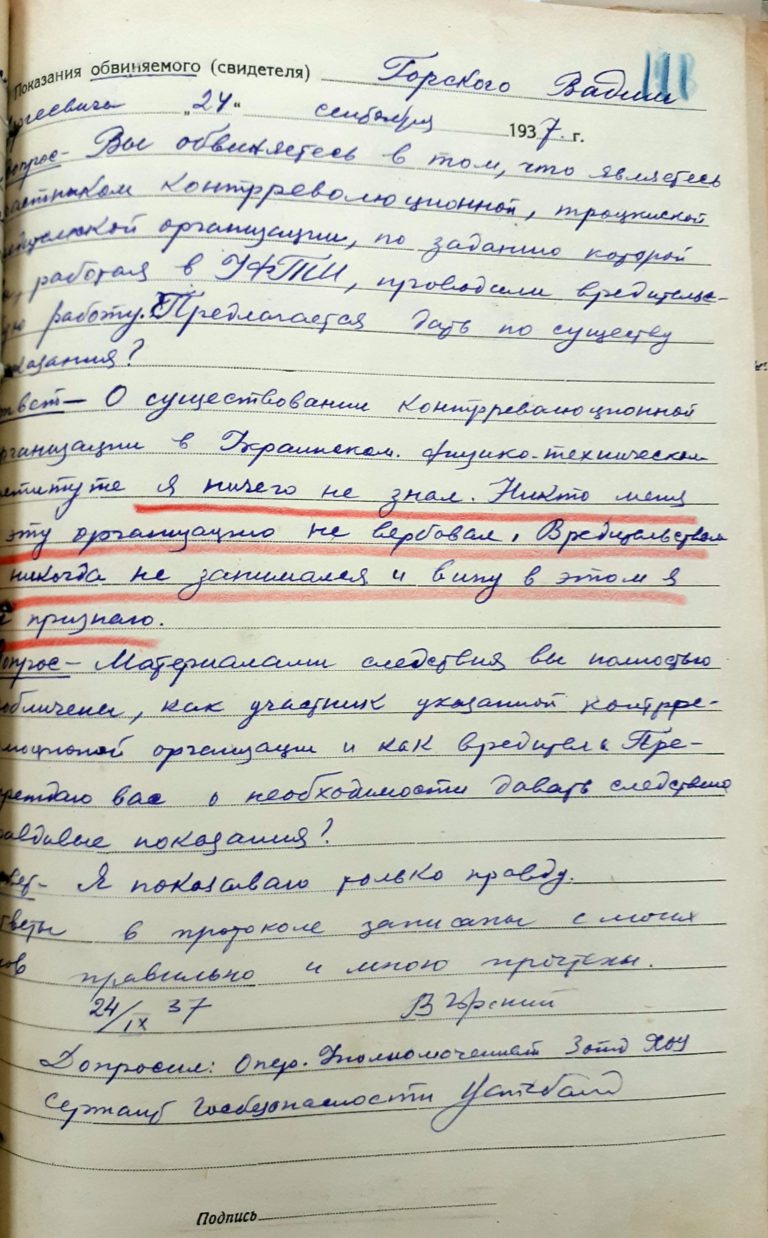 118
Показания обвиняемого (свидетеля) Горского Вадим
ргеевича „24“ сентября 1937. г.
опрос - Вы обвиняетесь в том, что являетесь
частником контрреволюционной, троцкисской
организации, по заданию которой
, работая в УФТИ, проводили вредительс-
ую работу. Предлагается дать по существу
оказания?
твет - О существовании контрреволюционной
рганизации в Украинском. физико-техническом
ституте я ничего не знал. Никто меня
эту организацию не вербовал, Вредительством
никогда не занимался и вину в этом я
е признаю.
Вопрос - Материалами следствия вы полностью
обличены, как участник указанной контрре-
люционной организации и как вредитель. Пре-
преждаю вас о необходимости давать следствию
равдивые показания?
твет - Я показываю только правду.
тветы в протоколе записаны с моих
ов правильно и мною прочтены.
24/IX 37 В Горский
Допросил: Опер. Уполномоченный 3 отд ХОУ
Сержант Госбезопасности
Подпись